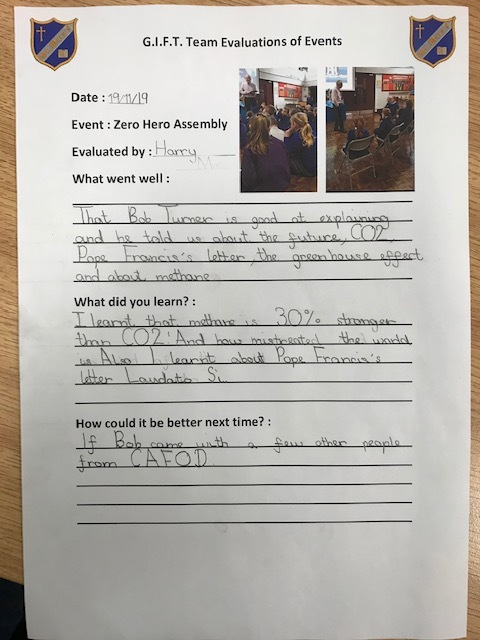 G.I.F.T. Team Evaluations of Events
Date : 19/11/19
Event : Zero Hero Assembly
Evaluated by : Harry
What went well :
That Bob Turner is good at explaining
and he told us about the future, CO2,
Pope Francis's letter, the greenhouse effect
and about methane
What did you learn? :
I learnt that methane is 30% stronger
than CO2! And how mistreated the world
is Also I learnt about Pope Francis's
letter Laudato Si.
How could it be better next time? :
If Bob came with a few other people
from CAFOD